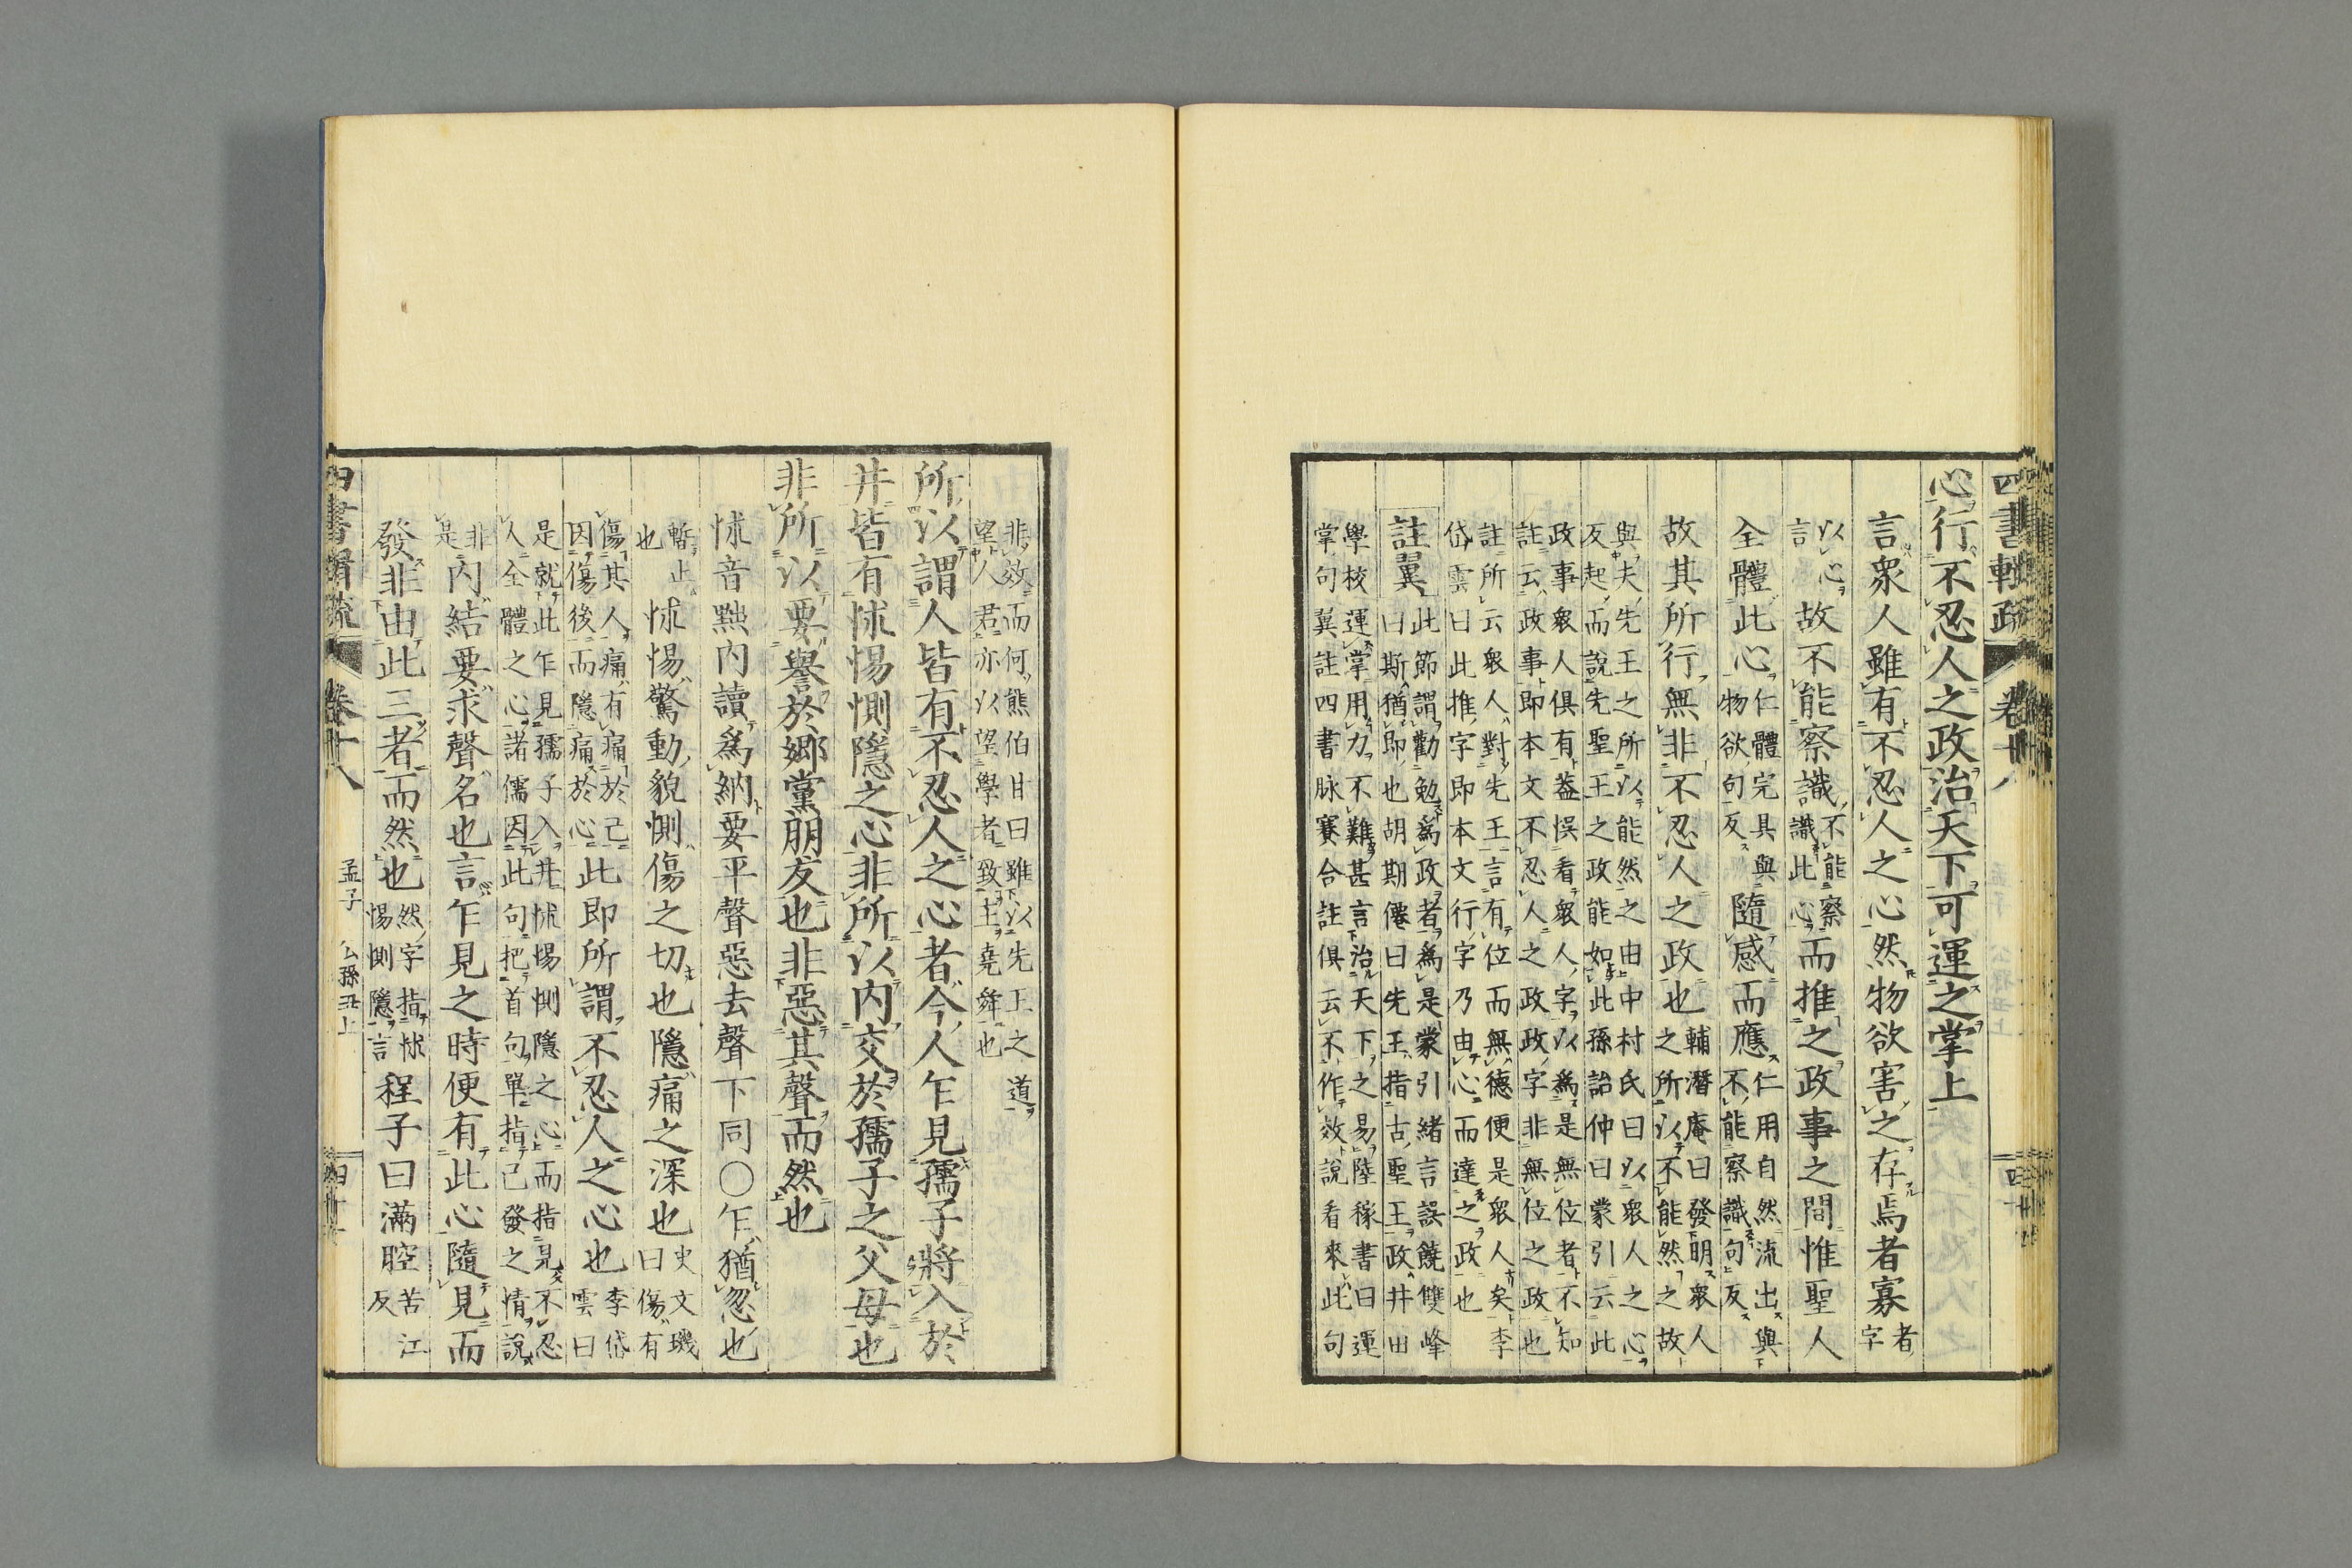 四書輯疏 卷十八 四十
心行不忍人之政治天下可運之掌上
言衆人雖有不忍人之心然物欲害之存焉者寡者字
以心言故不能察識不能察識此心而推之政事之間惟聖人
全體此心仁體完具與物欲句反隨感而應仁用自然流出與不能察識句反
故其所行無非不忍人之政也輔潛庵曰發明衆人之所以不能然之故
與夫先王之所以能然之由中村氏曰以衆人之心
反起而說先聖王之政能如此孫詒仲曰蒙引云此
政事衆人俱有蓋悞看衆人字以爲是無位者不知
註云政事即本文不忍人之政政字非無位之政也
註所云衆人對先王言有位而無德便是衆人矣李
岱雲曰此推字即本文行字乃由心而達之政也
註翼此節謂勸勉爲政者爲是蒙引緒言誤饒雙峰
曰斯猶即也胡期僊曰先王指古聖王王政井田
學校運掌用力不難甚言治天下之易陸稼書曰運
掌句巽註四書脉賽合註俱云不作效說看來此句
非效而何熊伯甘曰雖以先王之道
望人君亦以望學者致主堯舜也
所以謂人皆有不忍人之心者今人乍見孺子將入於
井皆有怵惕惻隱之心非所以内交於孺子之父母也
非所以要譽於郷黨朋友也非惡其聲而然也
怵音黜内讀爲納要平聲惡去聲下同〇乍猶忽也
暫止也怵惕驚動貌惻傷之切也隱痛之深也史文璣曰傷有
傷其人痛有痛於己
因傷後而隱痛於心此即所謂不忍人之心也李岱雲曰
是就此乍見孺子入井怵惕惻隱之心而指見不忍
人全體之心諸儒因此句把首句單指己發之情說
非是内結要求聲名也言乍見之時便有此心隨見而
發非由此三者而然也然字指怵惕惻隱言程子曰滿腔苦江反
四書輯疏 卷十八 孟子 公孫丑上 四十一